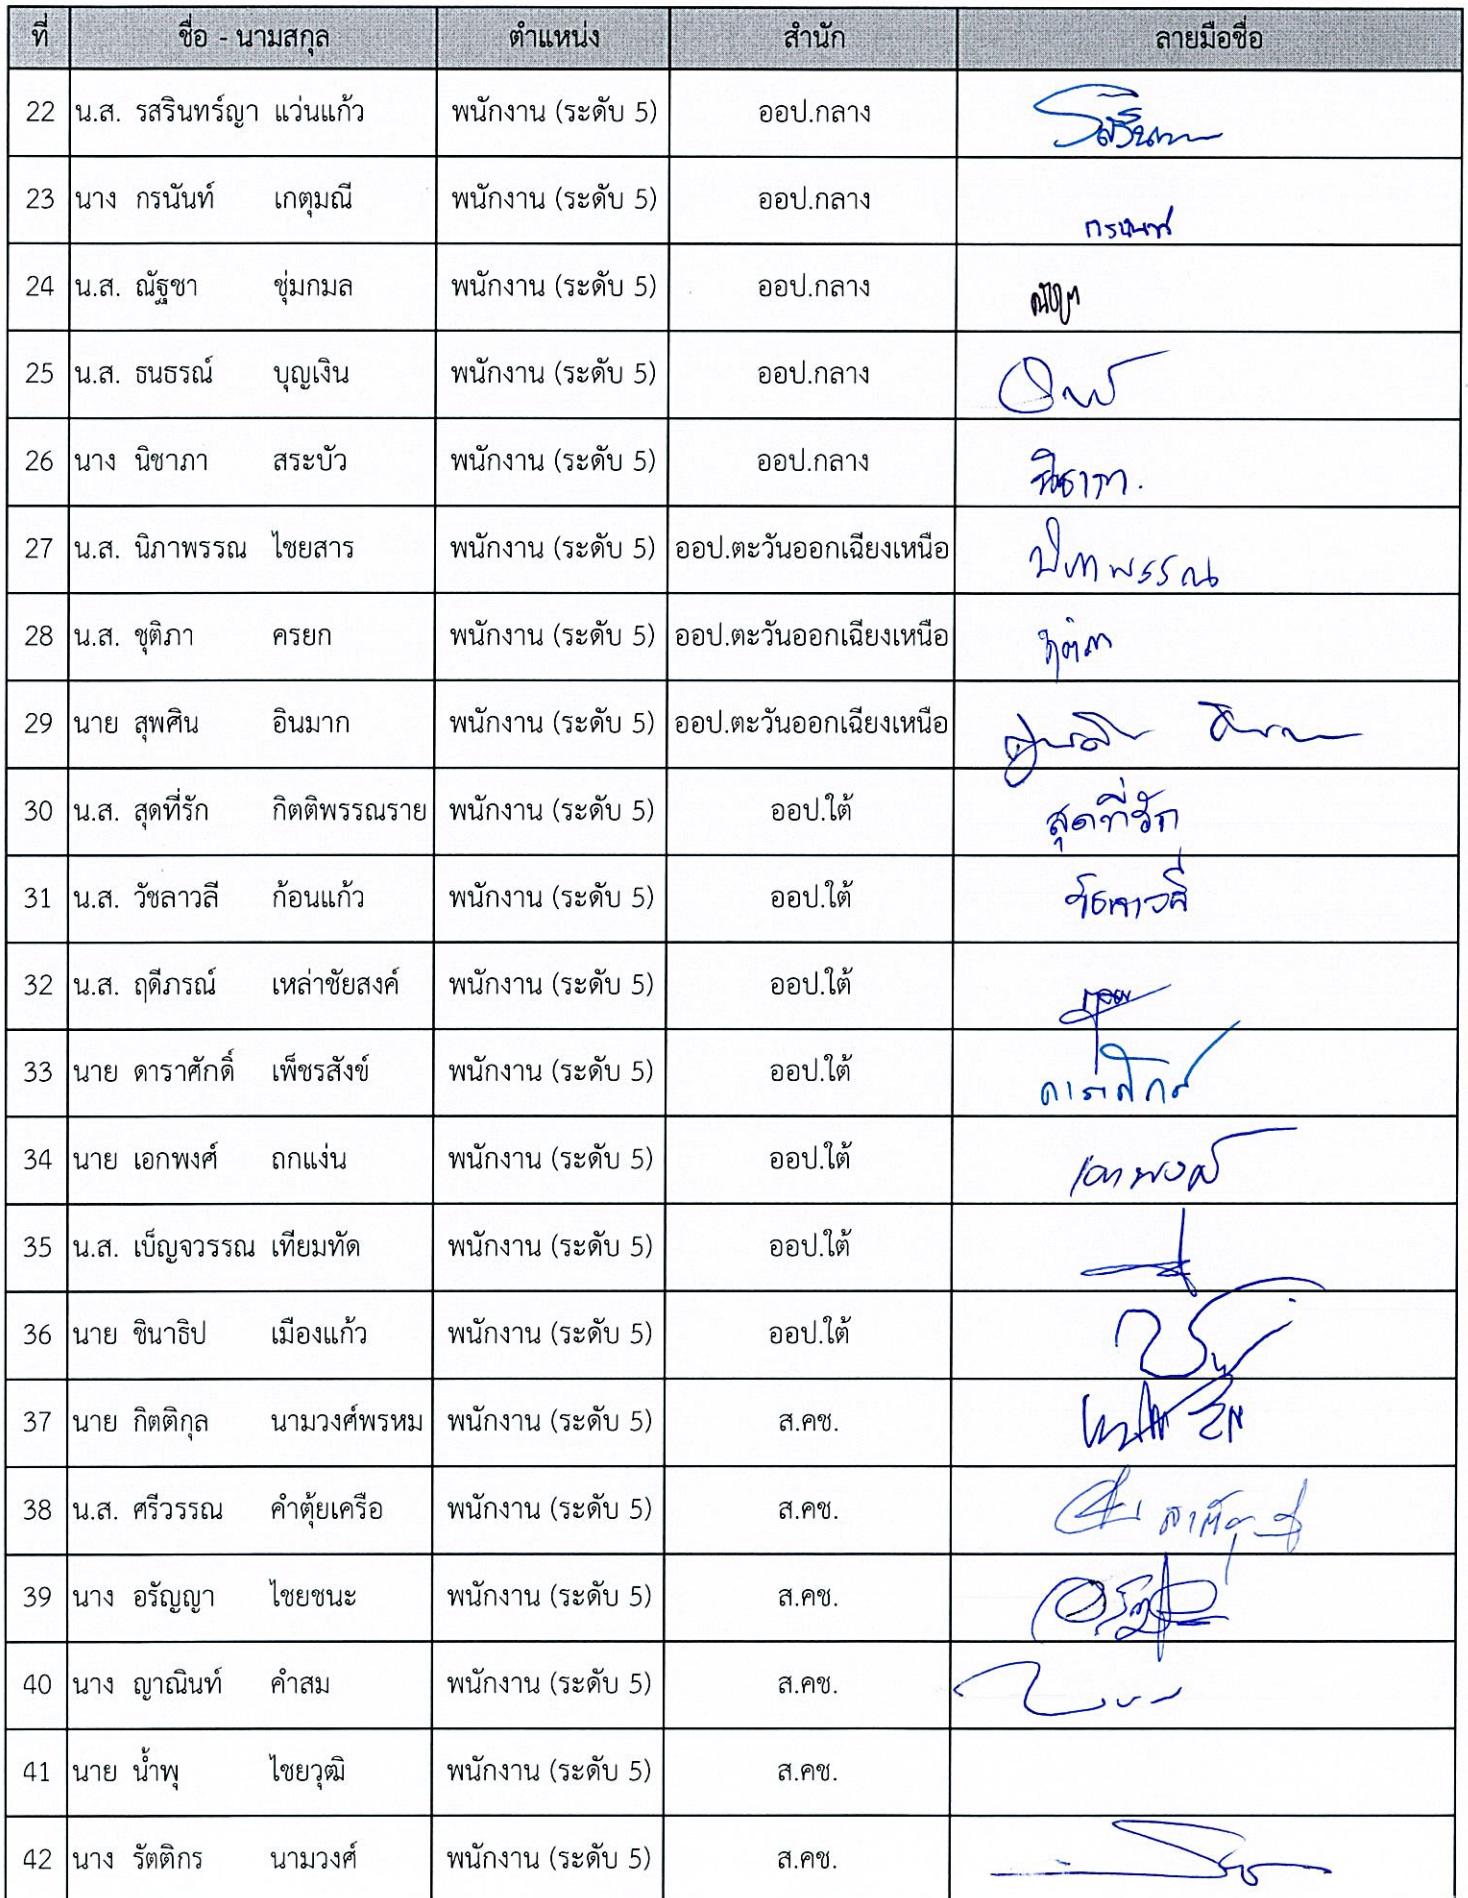 ที่ ชื่อ - นามสกุล ตำแหน่ง สำนัก ลายมือชื่อ
22 น.ส. รสรินทร์ญา แว่นแก้ว พนักงาน (ระดับ 5) ออป.กลาง
23 นาง กรนันท์ เกตุมณี พนักงาน (ระดับ 5) ออป.กลาง กรนันท์
24 น.ส. ณัฐชา ชุ่มกมล พนักงาน (ระดับ 5) ออป.กลาง
25 น.ส. ธนธรณ์ บุญเงิน พนักงาน (ระดับ 5) ออป.กลาง
26 นาง นิชาภา สระบัว พนักงาน (ระดับ 5) ออป.กลาง นิชาภา.
27 น.ส. นิภาพรรณ ไชยสาร พนักงาน (ระดับ 5) ออป.ตะวันออกเฉียงเหนือ นิภาพรรณ
28 น.ส. ชุติภา ครยก พนักงาน (ระดับ 5) ออป.ตะวันออกเฉียงเหนือ ชุติภา
29 นาย สุพศิน อินมาก พนักงาน (ระดับ 5) ออป.ตะวันออกเฉียงเหนือ
30 น.ส. สุดที่รัก กิตติพรรณราย พนักงาน (ระดับ 5) ออป.ใต้ สุดที่รัก
31 น.ส. วัชลาวลี ก้อนแก้ว พนักงาน (ระดับ 5) ออป.ใต้ วัชลาวลี
32 น.ส. ฤดีภรณ์ เหล่าชัยสงค์ พนักงาน (ระดับ 5) ออป.ใต้
33 นาย ดาราศักดิ์ เพ็ชรสังข์ พนักงาน (ระดับ 5) ออป.ใต้
34 นาย เอกพงศ์ ถกแง่น พนักงาน (ระดับ 5) ออป.ใต้ เอกพงศ์
35 น.ส. เบ็ญจวรรณ เทียมทัด พนักงาน (ระดับ 5) ออป.ใต้
36 นาย ชินาธิป เมืองแก้ว พนักงาน (ระดับ 5) ออป.ใต้
37 นาย กิตติกุล นามวงศ์พรหม พนักงาน (ระดับ 5) ส.คช.
38 น.ส. ศรีวรรณ คำตุ้ยเครือ พนักงาน (ระดับ 5) ส.คช.
39 นาง อรัญญา ไชยชนะ พนักงาน (ระดับ 5) ส.คช.
40 นาง ญาณินท์ คำสม พนักงาน (ระดับ 5) ส.คช.
41 นาย น้ำพุ ไชยวุฒิ พนักงาน (ระดับ 5) ส.คช.
42 นาง รัตติกร นามวงศ์ พนักงาน (ระดับ 5) ส.คช.